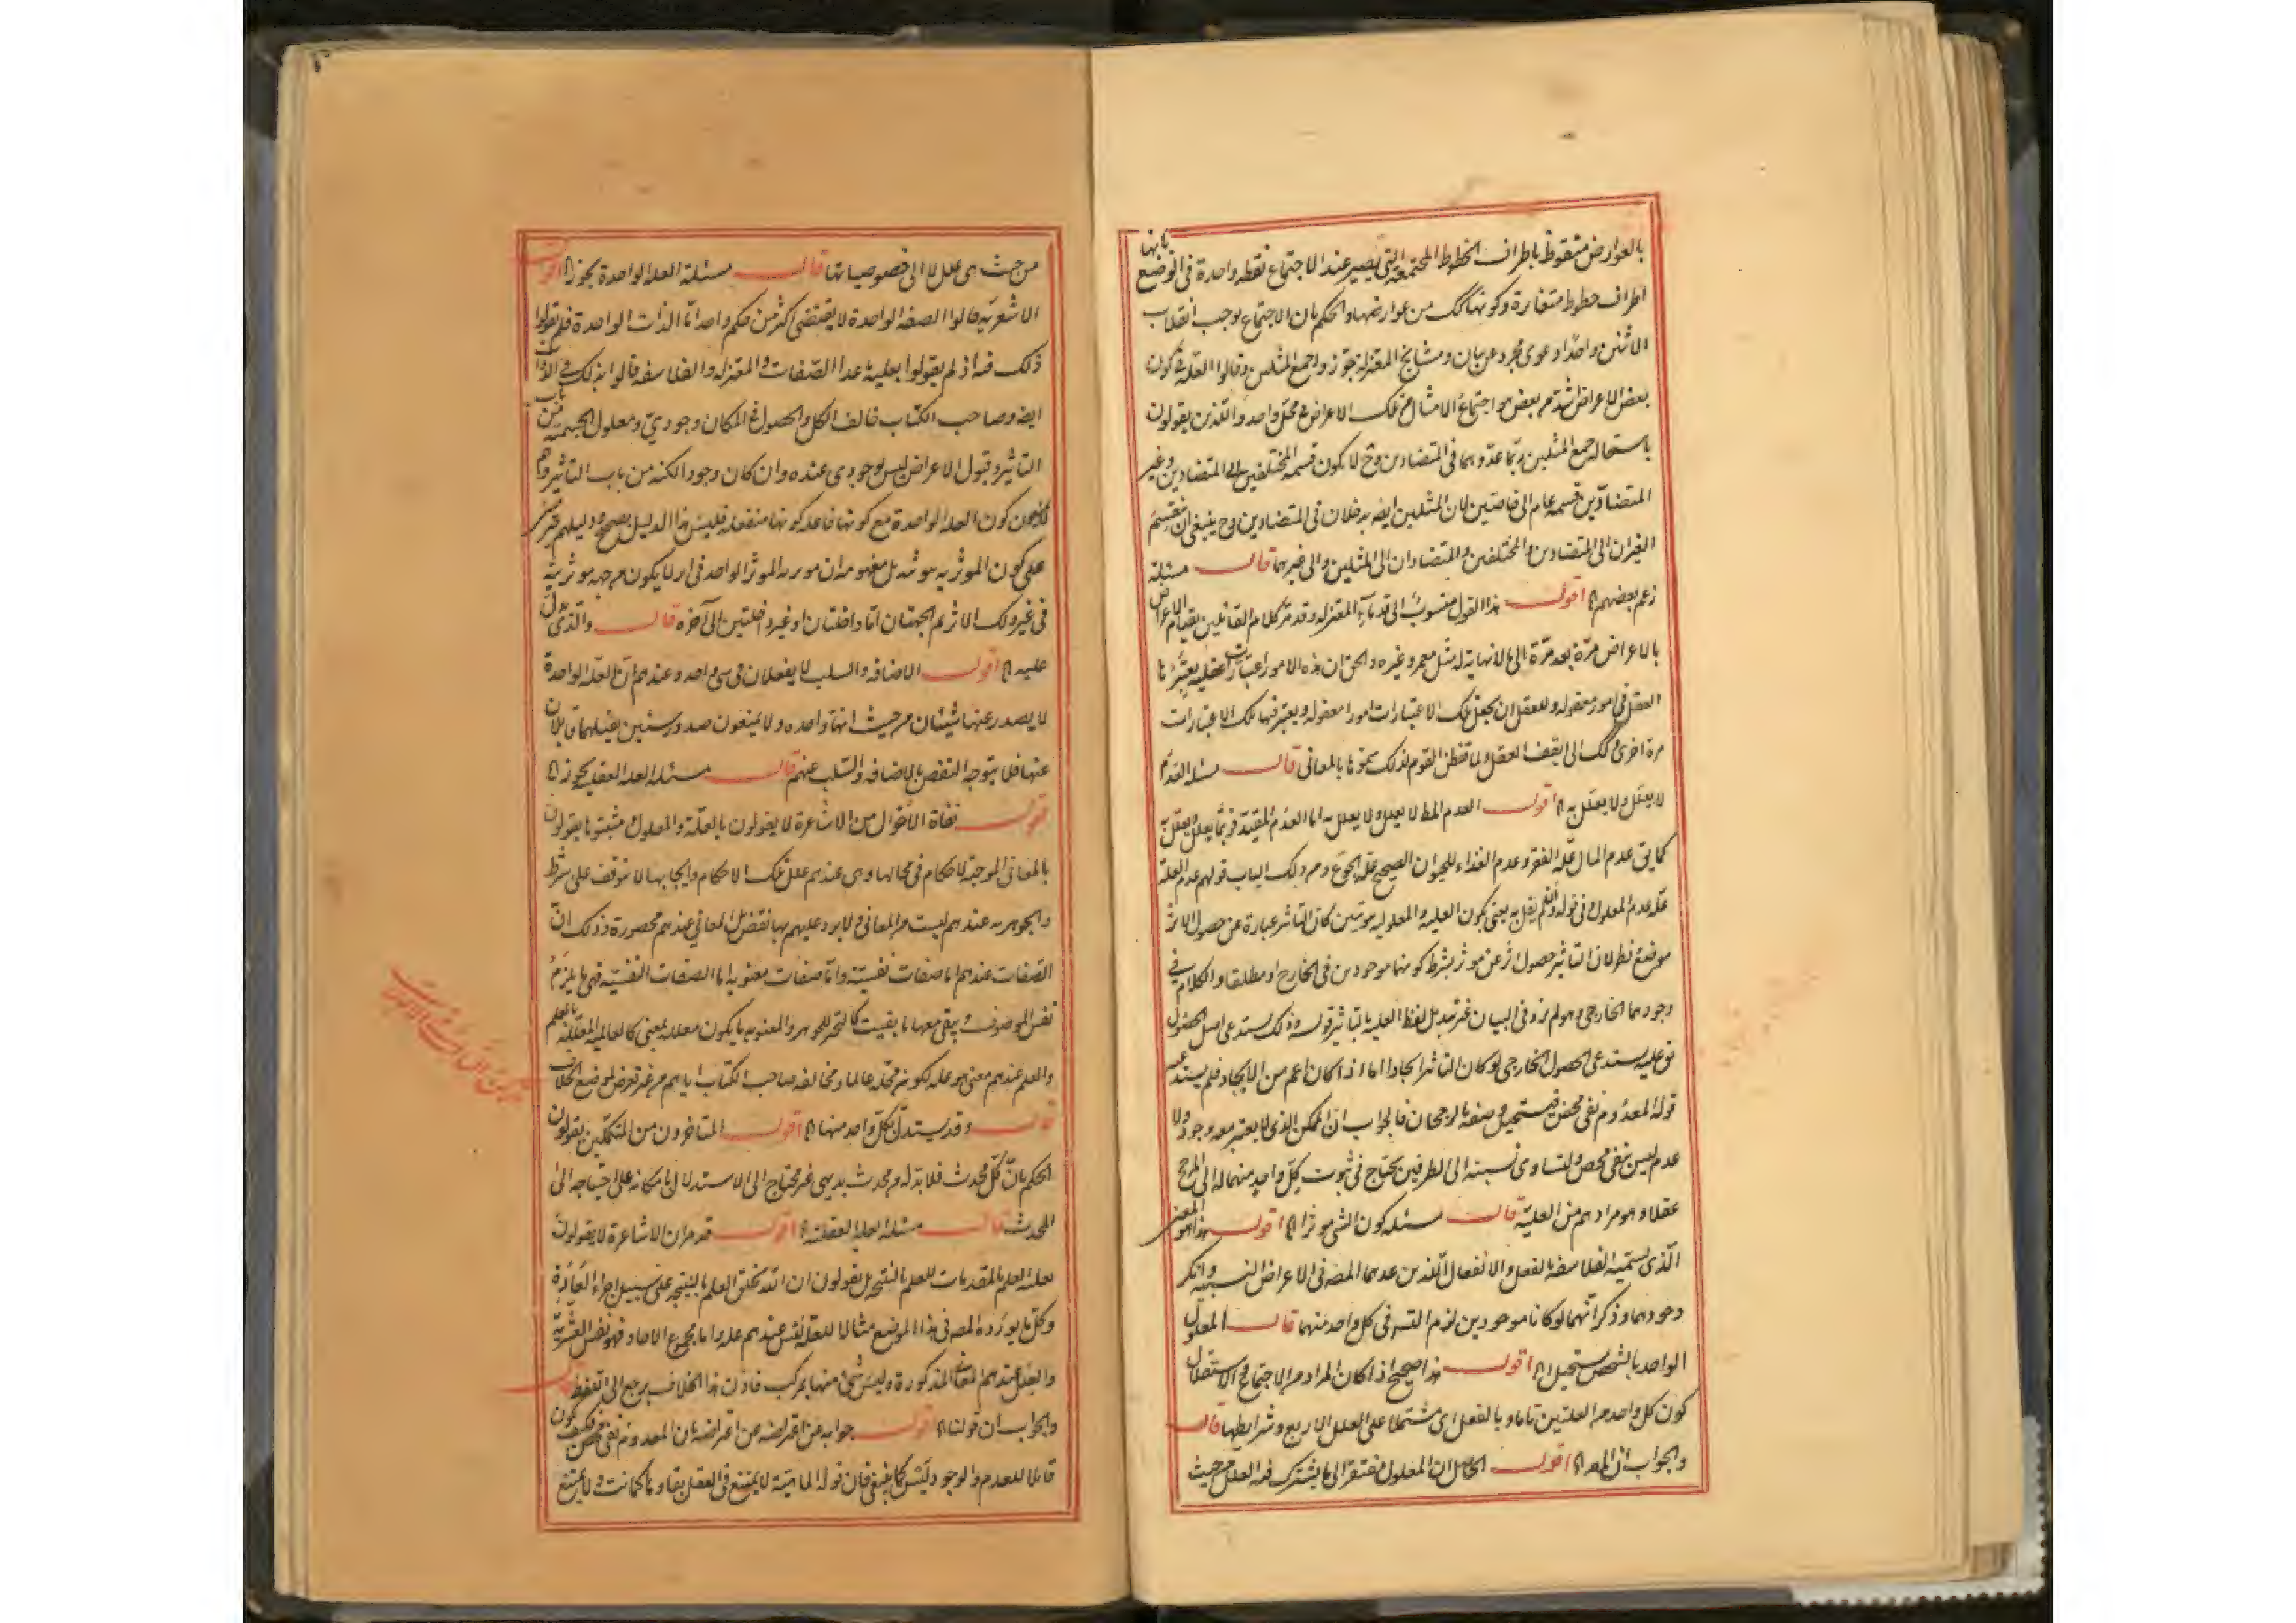 بالعوارض منقوظ باطراف الخطوط المجتمعة التى يصير عند الاجتماع نقطه واحدة فى الوضع بانها
اطراف خطوط متغايرة وكونها كك من عوارضها والحكم بان الاجتماع يوجب انقلاب
الاثنين واحدا دعوى مجرد عن بيان ومشايخ المعتزلة جوزوا جمع المثلين وقالوا العلة فى كون
بعض الاعراض اشد من بعض هو اجتماع الامثال من تلك الاعراض فى محل واحد والذين يقولون
باستحالة جمع المثلين ربما عدوهما فى المتضادين وح لا يكون قسمه المختلفين الى المتضادين وغير
المتضادين قسمه عام الى خاصين لان المثلين ايضه يدخلان فى المتضادين وح ينبغى ان ينقسم
الغيران الى المتضادين والمختلفين والمتضادان الى المثلين والى غيرهما قال مسئلة
زعم بعضهم اه اقول هذا القول منسوب الى قدماء المعتزله وقد مر كلام القائلين بقيام الاعراض
بالاعراض مرة بعد مرة الى ما لا نهاية له مثل معمر وغيره والحق ان هذه الامور اعتبارات عقليه يعتبرها
العقل فى امور معقوله وللعقل ان يجعل تلك الاعتبارات امورا معقوله ويعتبر فيها تلك الاعتبارات
مرة اخرى وكك الى ان يقف العقل ولما تفطن القوم لذلك سموها بالمعانى قال مسئله العدم
لا يعلل ولا يعلل به اه اقول العدم المط لا يعلل ولا يعلل به اما العدم المقيد فربما يعلل ويعلل به
كما يق عدم المال علة الفقر وعدم الغذاء للحيوان الصحيح علة الجوع ومن ذلك الباب قولهم عدم العلة
علة عدم المعلول وفى قوله بعنى بكون العليه والمعلوليه ثبوتيتين كان التاثير عبارة عن حصول الاثر
موضع نظر لان التاثير حصول اثر عن موثر بشرط كونهما موجودين فى الخارج او مطلقا والكلام فى
وجودهما الخارجى وهو لم يزد فى البيان غير تبديل لفظ العليه بالتاثير قوله وذلك يستدعى اصل الحصول
نق عليه يستدعى الحصول الخارجى لو كان التاثير ايجادا اما اذا كان اعم من الايجاد فلم يستدعيه
قوله المعدوم نفى محض فيستحيل وصفه بالرجحان فالجواب ان الممكن الذى لا يعتبر معه وجود ولا
عدم ليس بنفى محض ولتساوى نسبته الى الطرفين يحتاج فى ثبوت كل واحد منهما له الى المرجح
عقلا وهو مرادهم من العلية قال مسئله كون الشى موثرا اه اقول هذا هو المعنى
الذى يسميه الفلاسفه بالفعل والانفعال اللذين عدهما المصه فى الاعراض النسبيه وانكر
وجودهما وذكر انهما لو كانا موجودين لزم التسه فى كل واحد منهما قال المعلول
الواحد بالشخص يستحيل اه اقول هذا صحيح اذا كان المراد من الاجتماع والاستقلال
كون كل واحد من العلتين تاما وبالفعل اى مشتملا على العلل الاربع وشرايطها قال
والجواب ان المعه اه اقول الحاصل ان المعلول مفتقر الى ما يشترك فيه العلل من حيث
من حيث هى علل لا الى خصوصياتها قال مسئلة العلة الواحدة يجوز اه اقول
الاشعريه قالوا الصفة الواحدة لا يقتضى اكثر من حكم واحد اما الذات الواحدة فلم يقولوا
ذلك فيه اذ لم يقولوا بعلية ما عدا الصفات والمعتزله والفلاسفه قالوا بذلك فى الذات
ايضه وصاحب الكتاب خالف الكل والحصول فى المكان وجودى ومعلول الجسمية من باب
التاثير وقبول الاعراض ليس بوجودى عنده وان كان وجودا لكنه من باب التاثر وهم
لا يمنعون كون العلة الواحدة مع كونها فاعله كونها منفعله فليس هذا الدليل بصحيح ودليلهم
على كون الموثريه ثبوتيه بل مفهومه ان موثريه الموثر الواحد فى اثر لا يكون من جهه موثريته
فى غير ذلك الاثر ثم الجهتان اما داخلتان او غير داخلتين الى آخره قال والذى يدل
عليه اه اقول الاضافه والسلب لا يعقلان فى شى واحد وعندهم ان العلة الواحدة
لا يصدر عنها شيئان من حيث انها واحده ولا يمنعون صدور شيئين يقبلهما قابلان
عنها فلا يتوجه النقض بالاضافه والسلب عنهم قال مسئله العله العقليه يجوز اه
اقول نفاة الاحوال من الاشاعرة لا يقولون بالعلة والمعلول ومثبتوها يقولون
بالمعانى الموجبة لاحكام فى محالها وهى عندهم علل تلك الاحكام وايجابها لا توقف على شرط
والجوهريه عندهم ليست من المعانى ولا يرد عليهم بها نقض بل المعانى عندهم محصورة وذلك ان
الصفات عندهم اما صفات نفسية واما صفات معنويه اما الصفات النفسيه فهى ما يلزم
نفس الموصوف ويبقى معها ما بقيت كالتحيز للجوهر والمعنويه ما يكون معلله لمعنى كالعالميه المعللة بالعلم
والعلم عندهم معنى هو علة لكونه محله عالما ومخالفه صاحب الكتاب اياهم من غير تعرض لموضع الخلاف
قال وقد يستدل بكل واحد منها اه اقول المتاخرون من المتكلمين يقولون
الحكم بان كل محدث فلا بد له من محدث بديهى غير محتاج الى الاستدلال بامكانه على احتياجه الى
المحدث قال مسئله العلة العقلية اه اقول قد مر ان الاشاعرة لا يقولون
بعلية العلم بالمقدمات للعلم بالنتيجه بل يقولون ان الله يخلق العلم بالنتيجه على سبيل اجراء العادة
وكل ما يورده المصه فى هذا الموضع مثالا للعلة ليس عندهم علة واما مجموع الاحاد فهو نفس العشرية
والعلل عندهم المعانى المذكورة وليس شى منها بمركب فاذن هذا الخلاف يرجع الى اللفظ قال
والجواب ان قولنا اه اقول جوابه عن اعتراضه من اعتراضه بان المعدوم نفى محض فكيف يكون
قابلا للعدم والوجود ليس كما ينبغى فان قوله الماهية لا يمتنع فى العقل بقاوها كما كانت ولا يمتنع